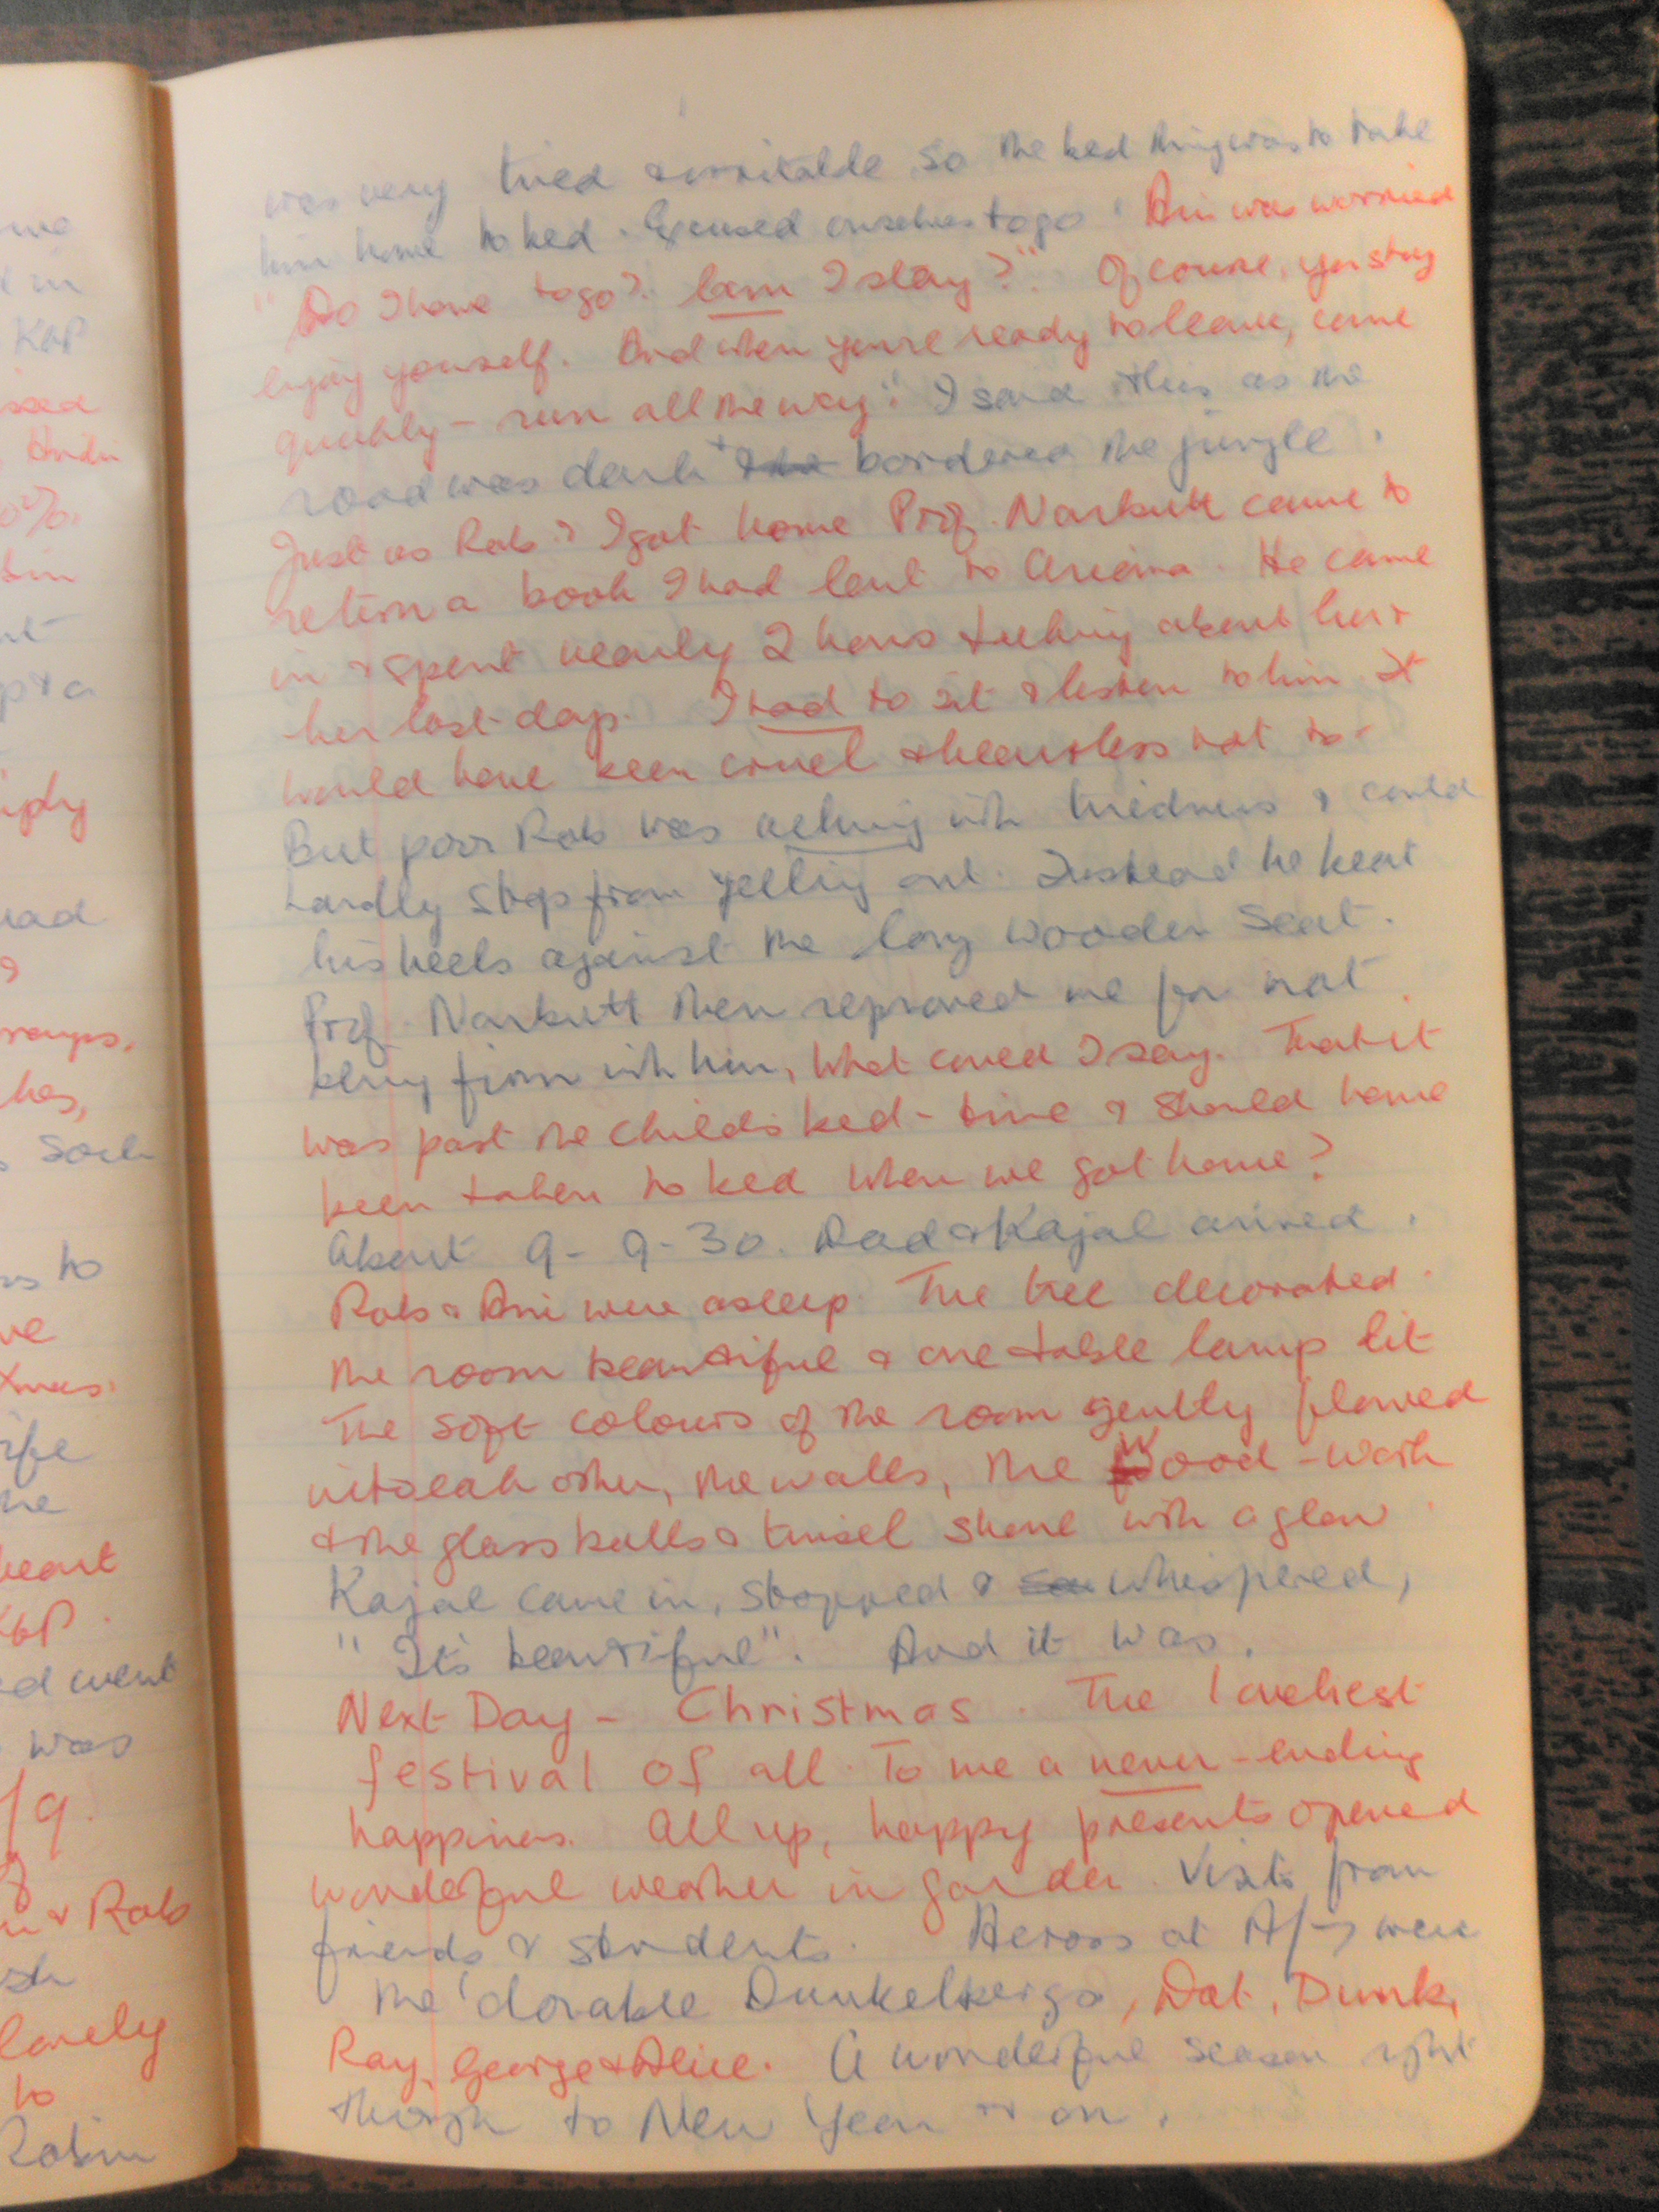 was very tired & irritable, so the bed thing was to take
him home to bed. Excused ourselves to go. Ani was worried
"Do I have to go? Can I stay?". Of course, you stay
enjoy yourself. And when you're ready to leave, come
quickly - run all the way". I said this as the
road was dark + bordered the jungle.
Just as Rob & I got home Prof. Narbutt came to
return a book I had lent to . He came
in & spent nearly 2 hours talking about her &
her last days. I had to sit & listen to him. It
would have been cruel & heartless not to.
But poor Rob was aching with tiredness & could
hardly stop from yelling out. Instead he beat
his heels against the long wooden seat.
Prof. Narbutt then reproved me for not
being firm with him, What could I say. That it
was past the child's bed-time & should have
been taken to bed when we got home?
About 9-9-30. Dad & Kajal arrived.
Rob & Ani were asleep. The tree decorated.
the room beautiful & one table lamp lit
The soft colours of the room gently flowed
into each other, the walls, the Wood-work
& the glass balls & tinsel shone with a glow.
Kajal came in, stopped & whispered,
"It's beautiful". And it was.
Next Day - Christmas. The loveliest
festival of all. To me a never-ending
happiness. All up, happy presents opened
wonderful weather in garden. Visits from
friends & students. Across at A/7 were
the 'dorable Dunkelbergs, Dot, Dunk,
Ray, George & Alice. A wonderful season right
through to New Year & on.
me
in
K&P
Andi
Bin
nt
& a
ad
roups,
has,
s to
ve
Xmas.
ife
he
heart
K&P.
d went
was
/9.
& Rob
lovely
to
Robin